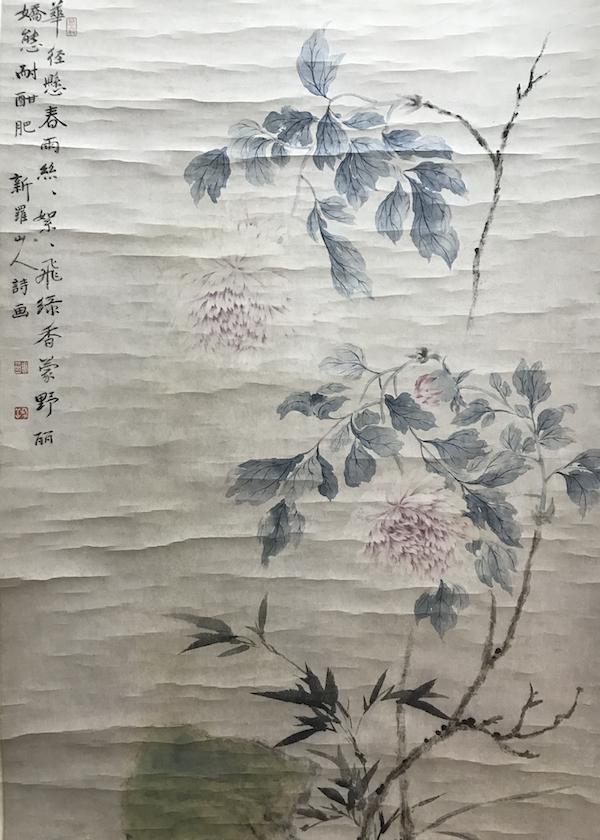 華径懸春雨絲、絮、飛綠香蒙野丽
嬌態耐酣肥
新羅山人詩画